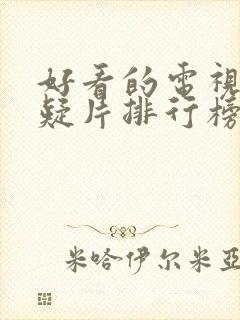 好看的電視
疑片排行榜
米哈伊尔米亞